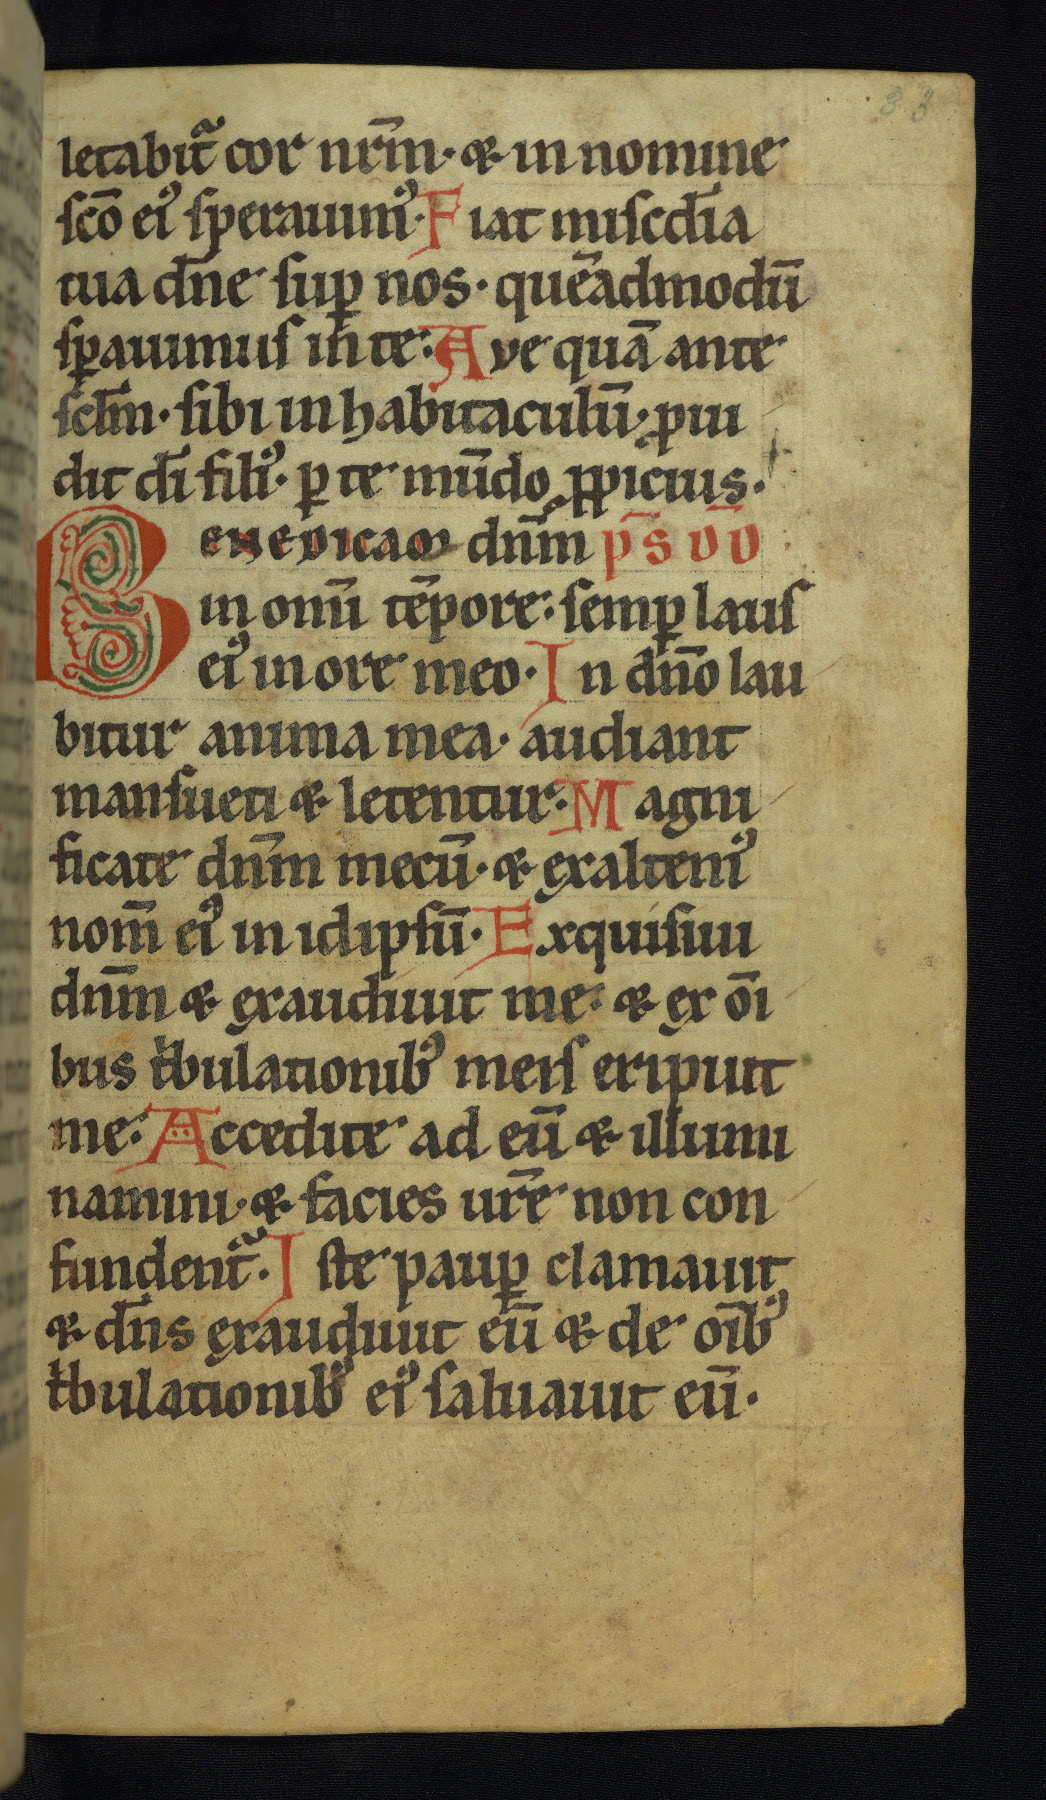 33
letabit᷑ cor nr̄m · ⁊ in nomine
ſcō ei᷒ ſperauim᷒ · Fiat miſcd̄ia
tua dn̄e ſuꝑ nos · quē admodū
ſꝑauimus in te : Ave quā ante
ſcl̄m · ſibi in habitaculū · ꝓui
dit dī fili᷒ · ꝑ te mūdo ꝓpicius ·
Benedicam dn̄m p̄s DD
in omī tēpore : ſemꝑ laus
ei᷒ in ore meo · In dn̄o lau
bitur anima mea · audiant
manſueti ⁊ letentur : Magni
ficate dn̄m mecū · ⁊ exaltem᷒
nom̄ ei᷒ in idipſū · Exquiſiui
dn̄m ⁊ exaudiuit me : ⁊ ex oī
bus tͥbulationib᷒ meis eripuit
me : Accedite ad eū ⁊ illumi
namini · ⁊ facies ur̄e non con
fundent᷑ · Iſte pauꝑ clamauit
⁊ dn̄s exaudiuit eū ⁊ de oīb᷒
tͥbulationib᷒ ei᷒ ſaluauit eū ·